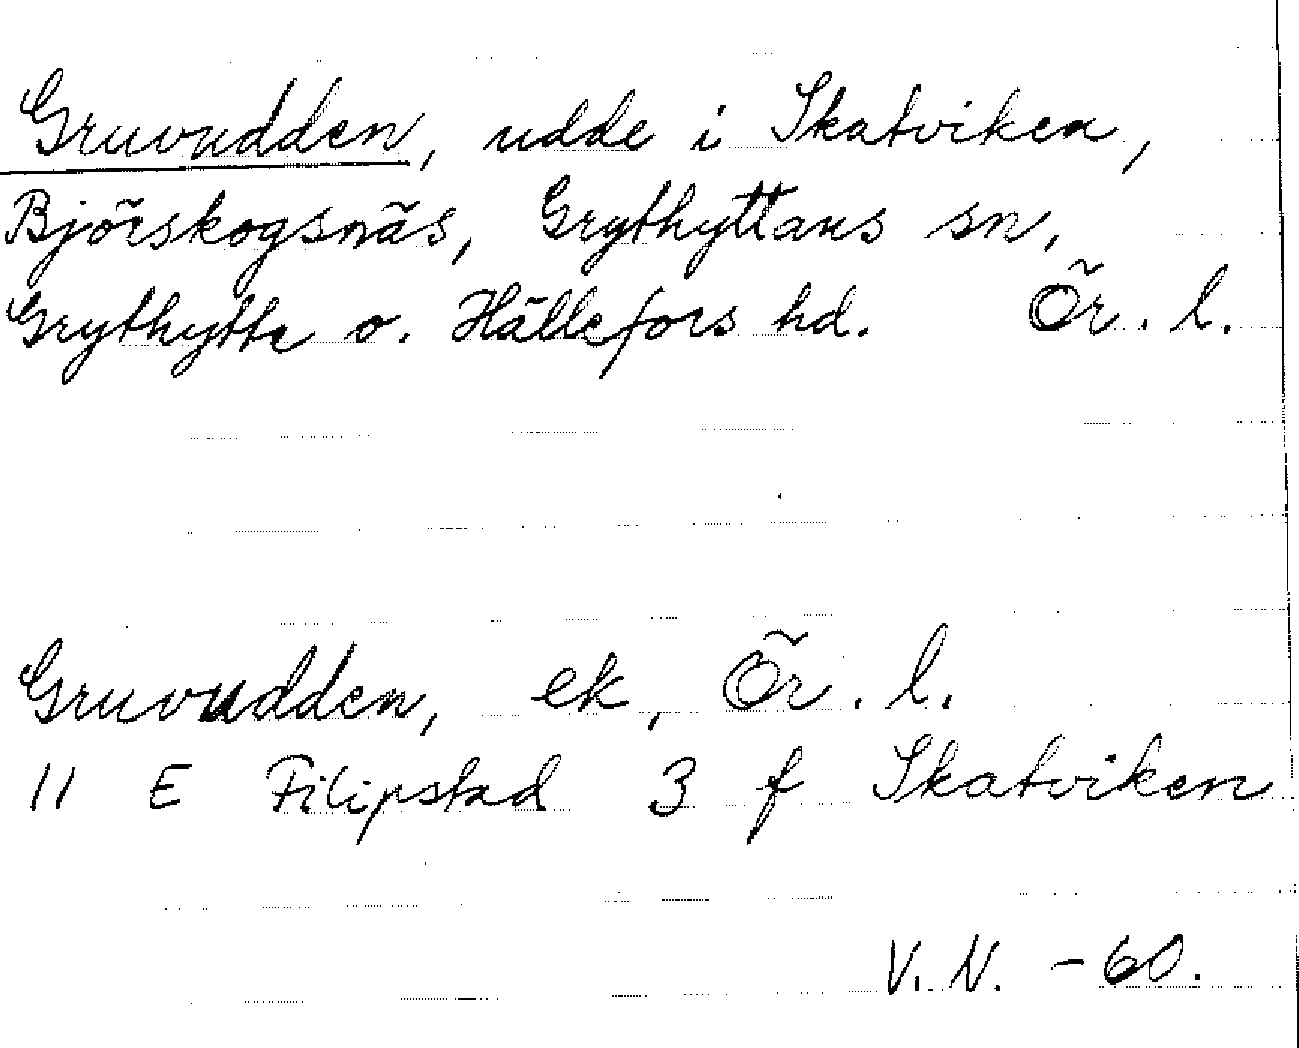 Gruvudden, udde i Skatviken,
Björskogsnäs, Grythyttans sn,
Grythytte o. Hällefors hd. Ör. l.
Gruvudden, ek, Ör. l.
11 E Filipstad 3 f Skatviken
V. N. -60.